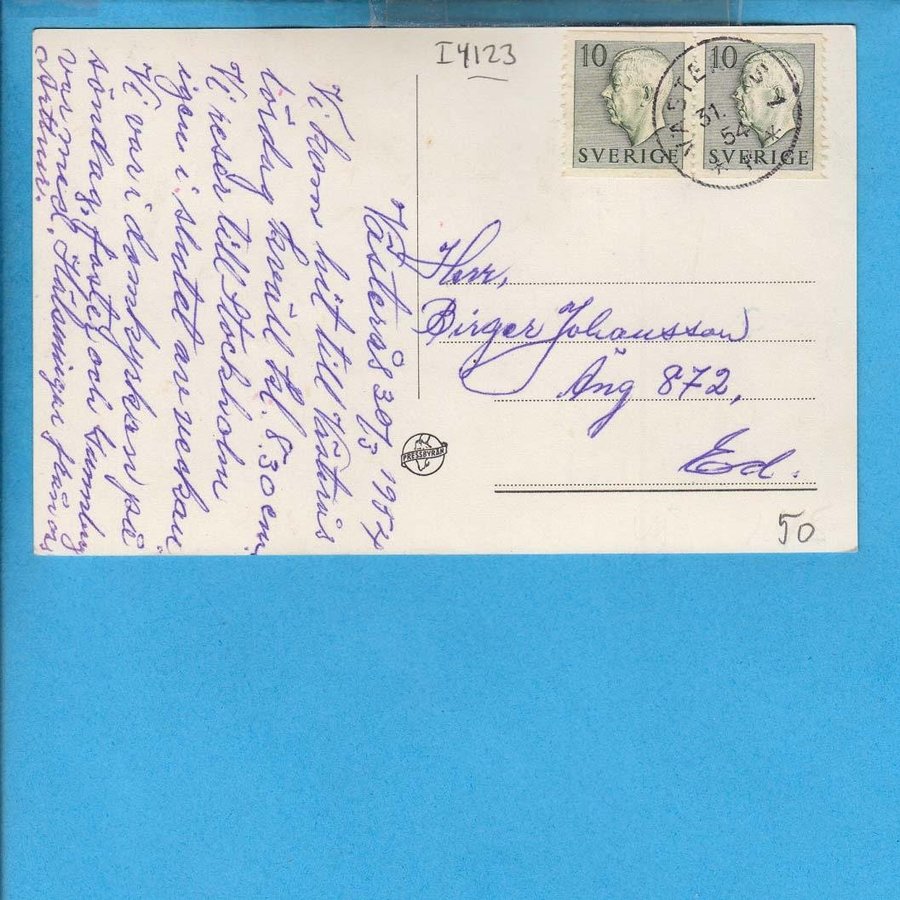 I4123
10
SVERIGE
10
SVERIGE
31.
54
Västerås 30/3 1954
Vi kom hit till Västerås
lördag kväll kl. 8.30 em.
Vi reser till Stockholm
igen i slutet av veckan
Vi var i domkyrkan på
söndag, faster och
var med. Hälsningar från
Arthur.
Herr,
Birger Johansson
Äng 872,
Ed.
PRESSBYRÅN
50